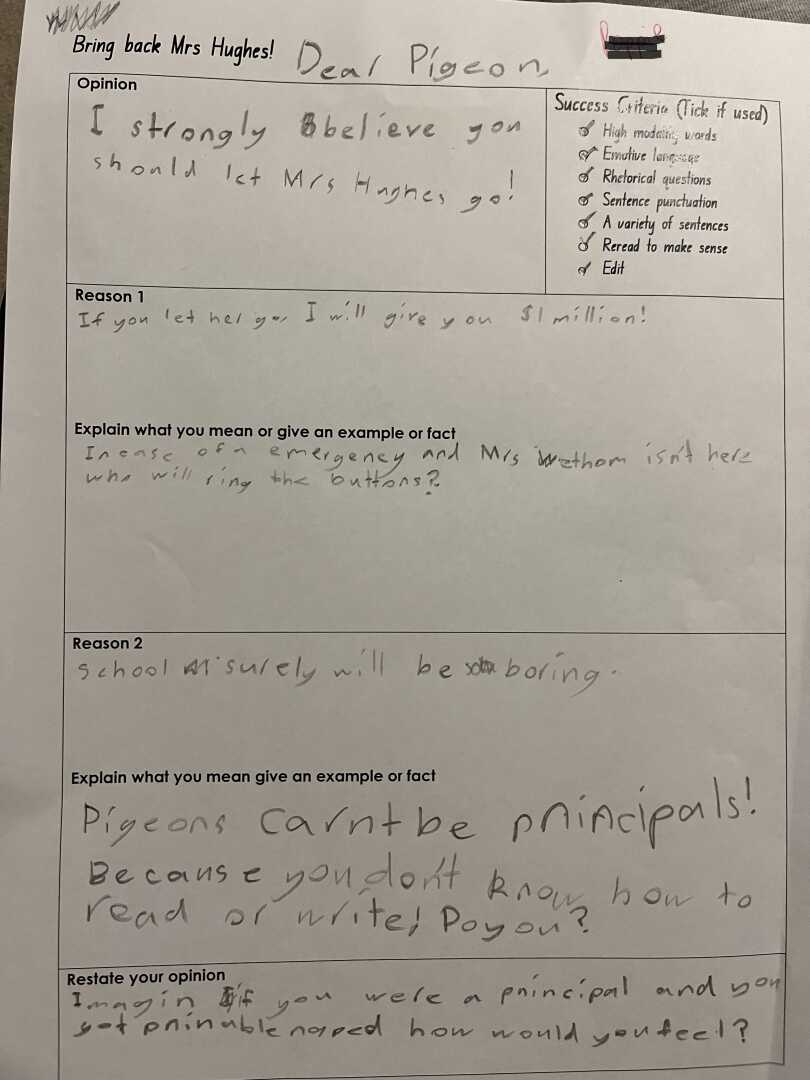 Bring back Mrs Hughes! Dear Pigeon,
Opinion
I strongly believe you
should let Mrs Hughes go!
Success Criteria (Tick if used)
High modality words
Emotive language
Rhetorical questions
Sentence punctuation
A variety of sentences
Reread to make sense
Edit
Reason 1
If you let her go, I will give you $1 million!
Explain what you mean or give an example or fact
In case of a emergency and Mrs isn't here
who will ring the buttons?
Reason 2
School surely will be boring.
Explain what you mean give an example or fact
Pigeons carnt be pnincipals!
Because you don't know how to
read or write! Do you?
Restate your opinion
Imagin if you were a pnincipal and you
got how would you feel?